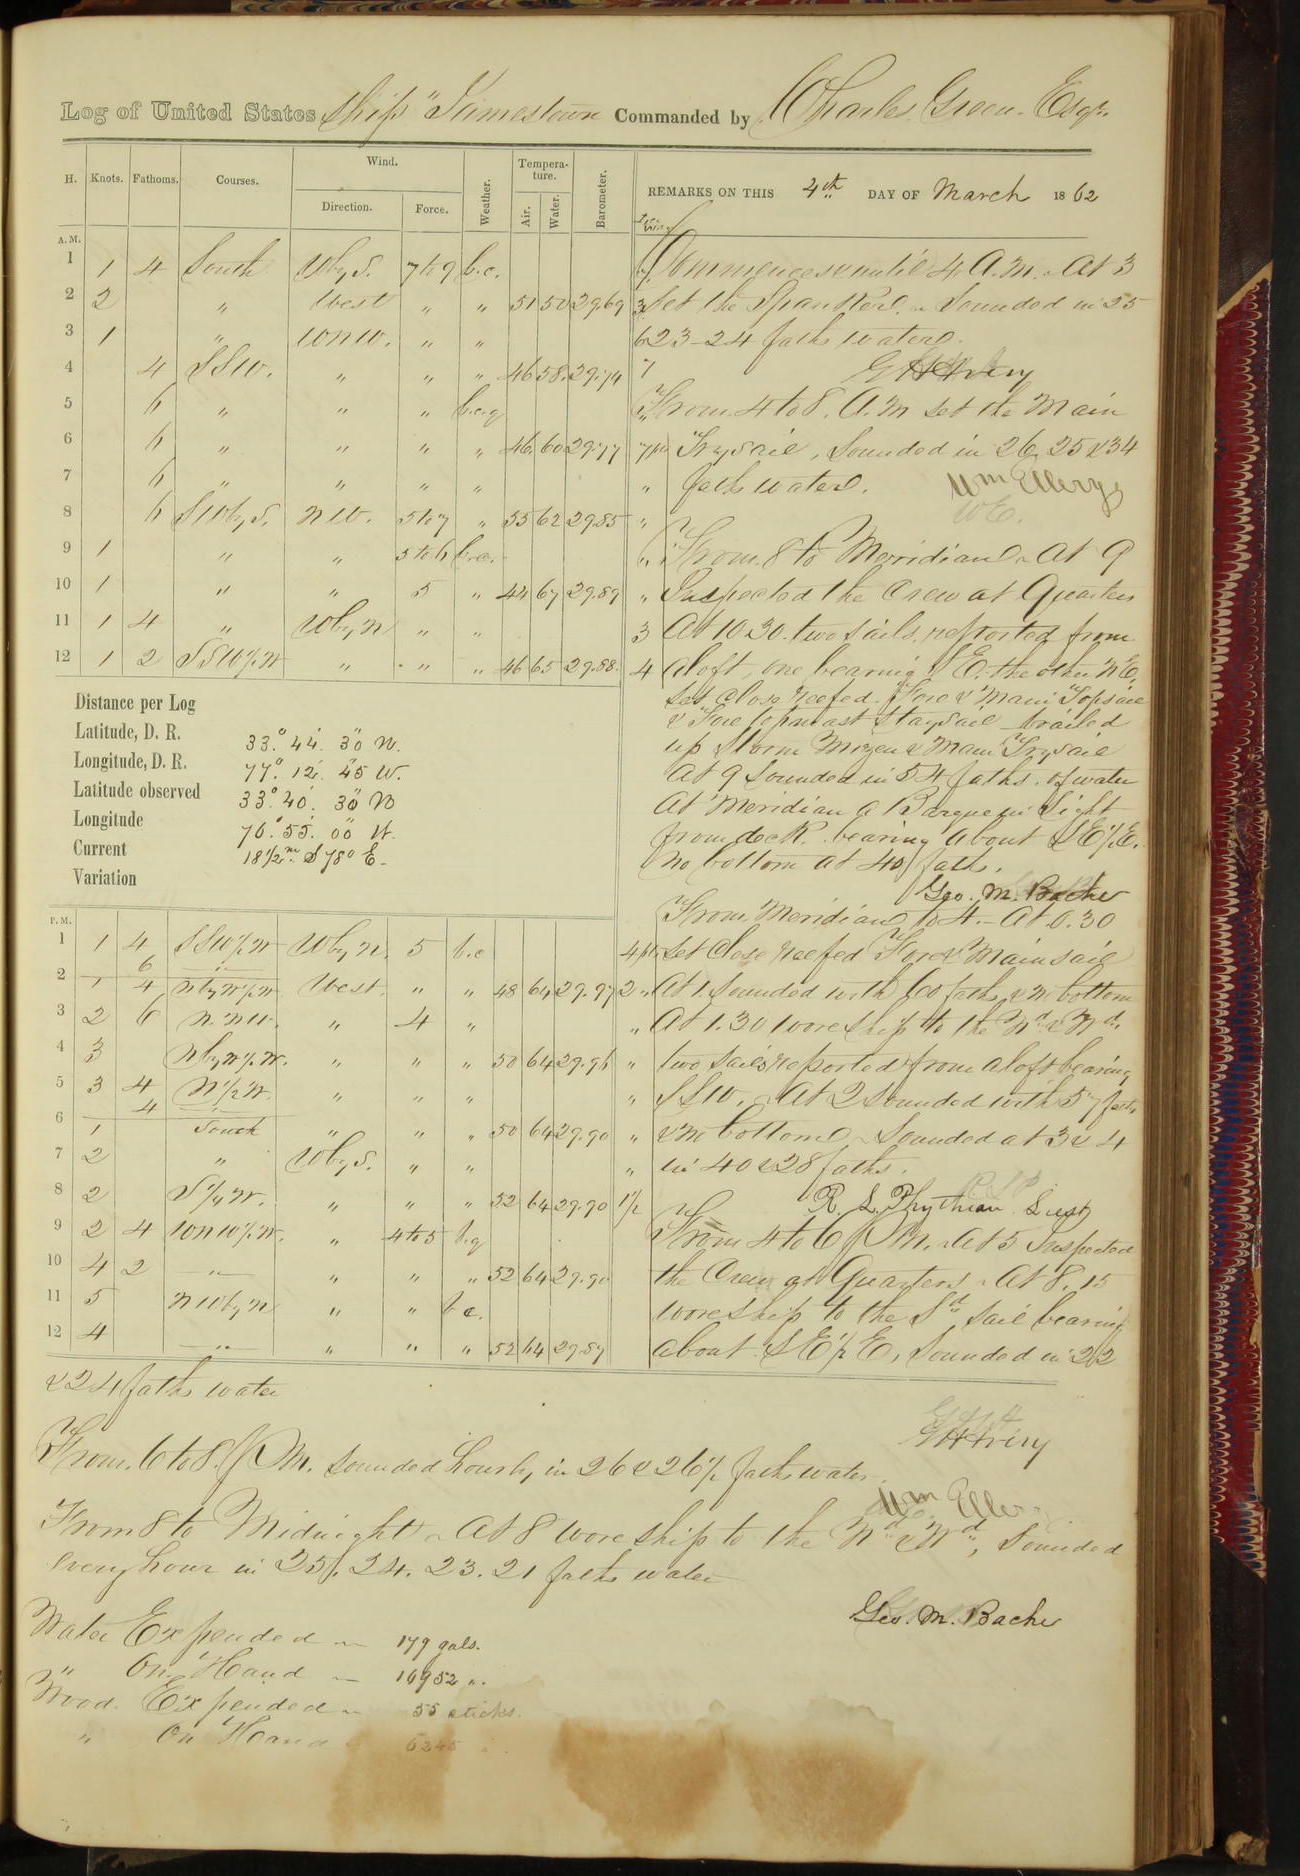 Log of United States Ship "Jamestown" Commanded by Charles Green Esqr.
H. Knots. Fathoms. Courses. Wind. Direction. Force. Weather. Temperature. Air. Water. Barometer. REMARKS ON THIS 4th DAY OF March 1862
A. M.
1 1 4 South W by S. 7 to 9 b.c. Commences & until 4 A.M. At 3
2 2 " West " " 51 50 29.69 3 Set the Spanker. Sounded in 25
3 1 " WNW. " " 6 23-24 faths water.
4 4 SSW. " " " 46 58. 29.74 7
5 6 " " " b.c.q From 4 to 8. A.M set the Main
6 6 " " " " 46. 60 29.77 7 pts Trysail, Sounded in 26, 25 & 34
7 6 " " " " " faths water. Wm Ellery
8 6 SW by S. NW. 5 to 7 " 55 62 29.85 " WE.
9 1 " " 5 to 6 b.c. " From 8 to Meridian At 9
10 1 " " 5 " 44 67 29.89 " Inspected the Crew at Quarters
11 1 4 " W by N " " 3 At 10 30. two sails reported from
12 1 2 SSW½W " " " 46 65 29.88. 4 aloft, one bearing SE. the other NE.
Set close reefed Fore & Main Topsail
& Fore topmast Staysail brailed
up Storm Mizen & Main Trysail
At 9 Sounded in 54 faths. of water
At Meridian a Barque in Sight
from deck bearing about SE½E.
No bottom at 40 faths.
Geo. M. Bache
Distance per Log
Latitude, D. R. 33° 44' 30" N.
Longitude, D. R. 77° 12' 45" W.
Latitude observed 33° 40' 30" N
Longitude 76° 55' 00" W.
Current 18½ m S 78° E.
Variation
P. M. From Meridian to 4. At 0.30
1 1 4 SSW½W W by N. 5 b.c 4 pts set close reefed Fore & Mainsail
6 "
2 1 4 N by W½W West. " " 48 64 29.97 2 " At 1. Sounded with 60 faths & no bottom
3 2 6 N.NW. " 4 " " At 1.30 wore ship to the Nd & Wd.
4 3 N by W½W. " " " 50 64 29.96 " two sails reported from aloft bearing
5 3 4 N½W. " " " " SSW. At 2 sounded with 57 faths
4 "
6 1 South " " " 50 64 29.90 " & no bottom. Sounded at 3 & 4
7 2 " W by S. " " " in 40 & 28 faths.
8 2 S¼W. " " " 52 64 29.90 1½ R. L. Phythian Lieut
9 2 4 WNW½W. " 4 to 5 b.q From 4 to 6 P.M. At 5 Inspected
10 4 2 " " " " 52 64 29.90 the Crew at Quarters. At 8.15
11 5 NW by N " " b c. wore ship to the Sd sail bearing
12 4 " " " " 52 64 29.89 about SE½E, Sounded in 22
& 24 faths water
From. 6 to 8. P.M. Sounded hourly in 26 & 26½ faths water.
Wm Ellery
From 8 to Midnight At 8 wore ship to the Nd & Wd, Sounded
every hour in 25, 24. 23. 21 faths water
Geo. M. Bache
Water Expended 179 gals.
" On Hand 16952 ".
Wood Expended 55 sticks.
" On Hand 6245 "